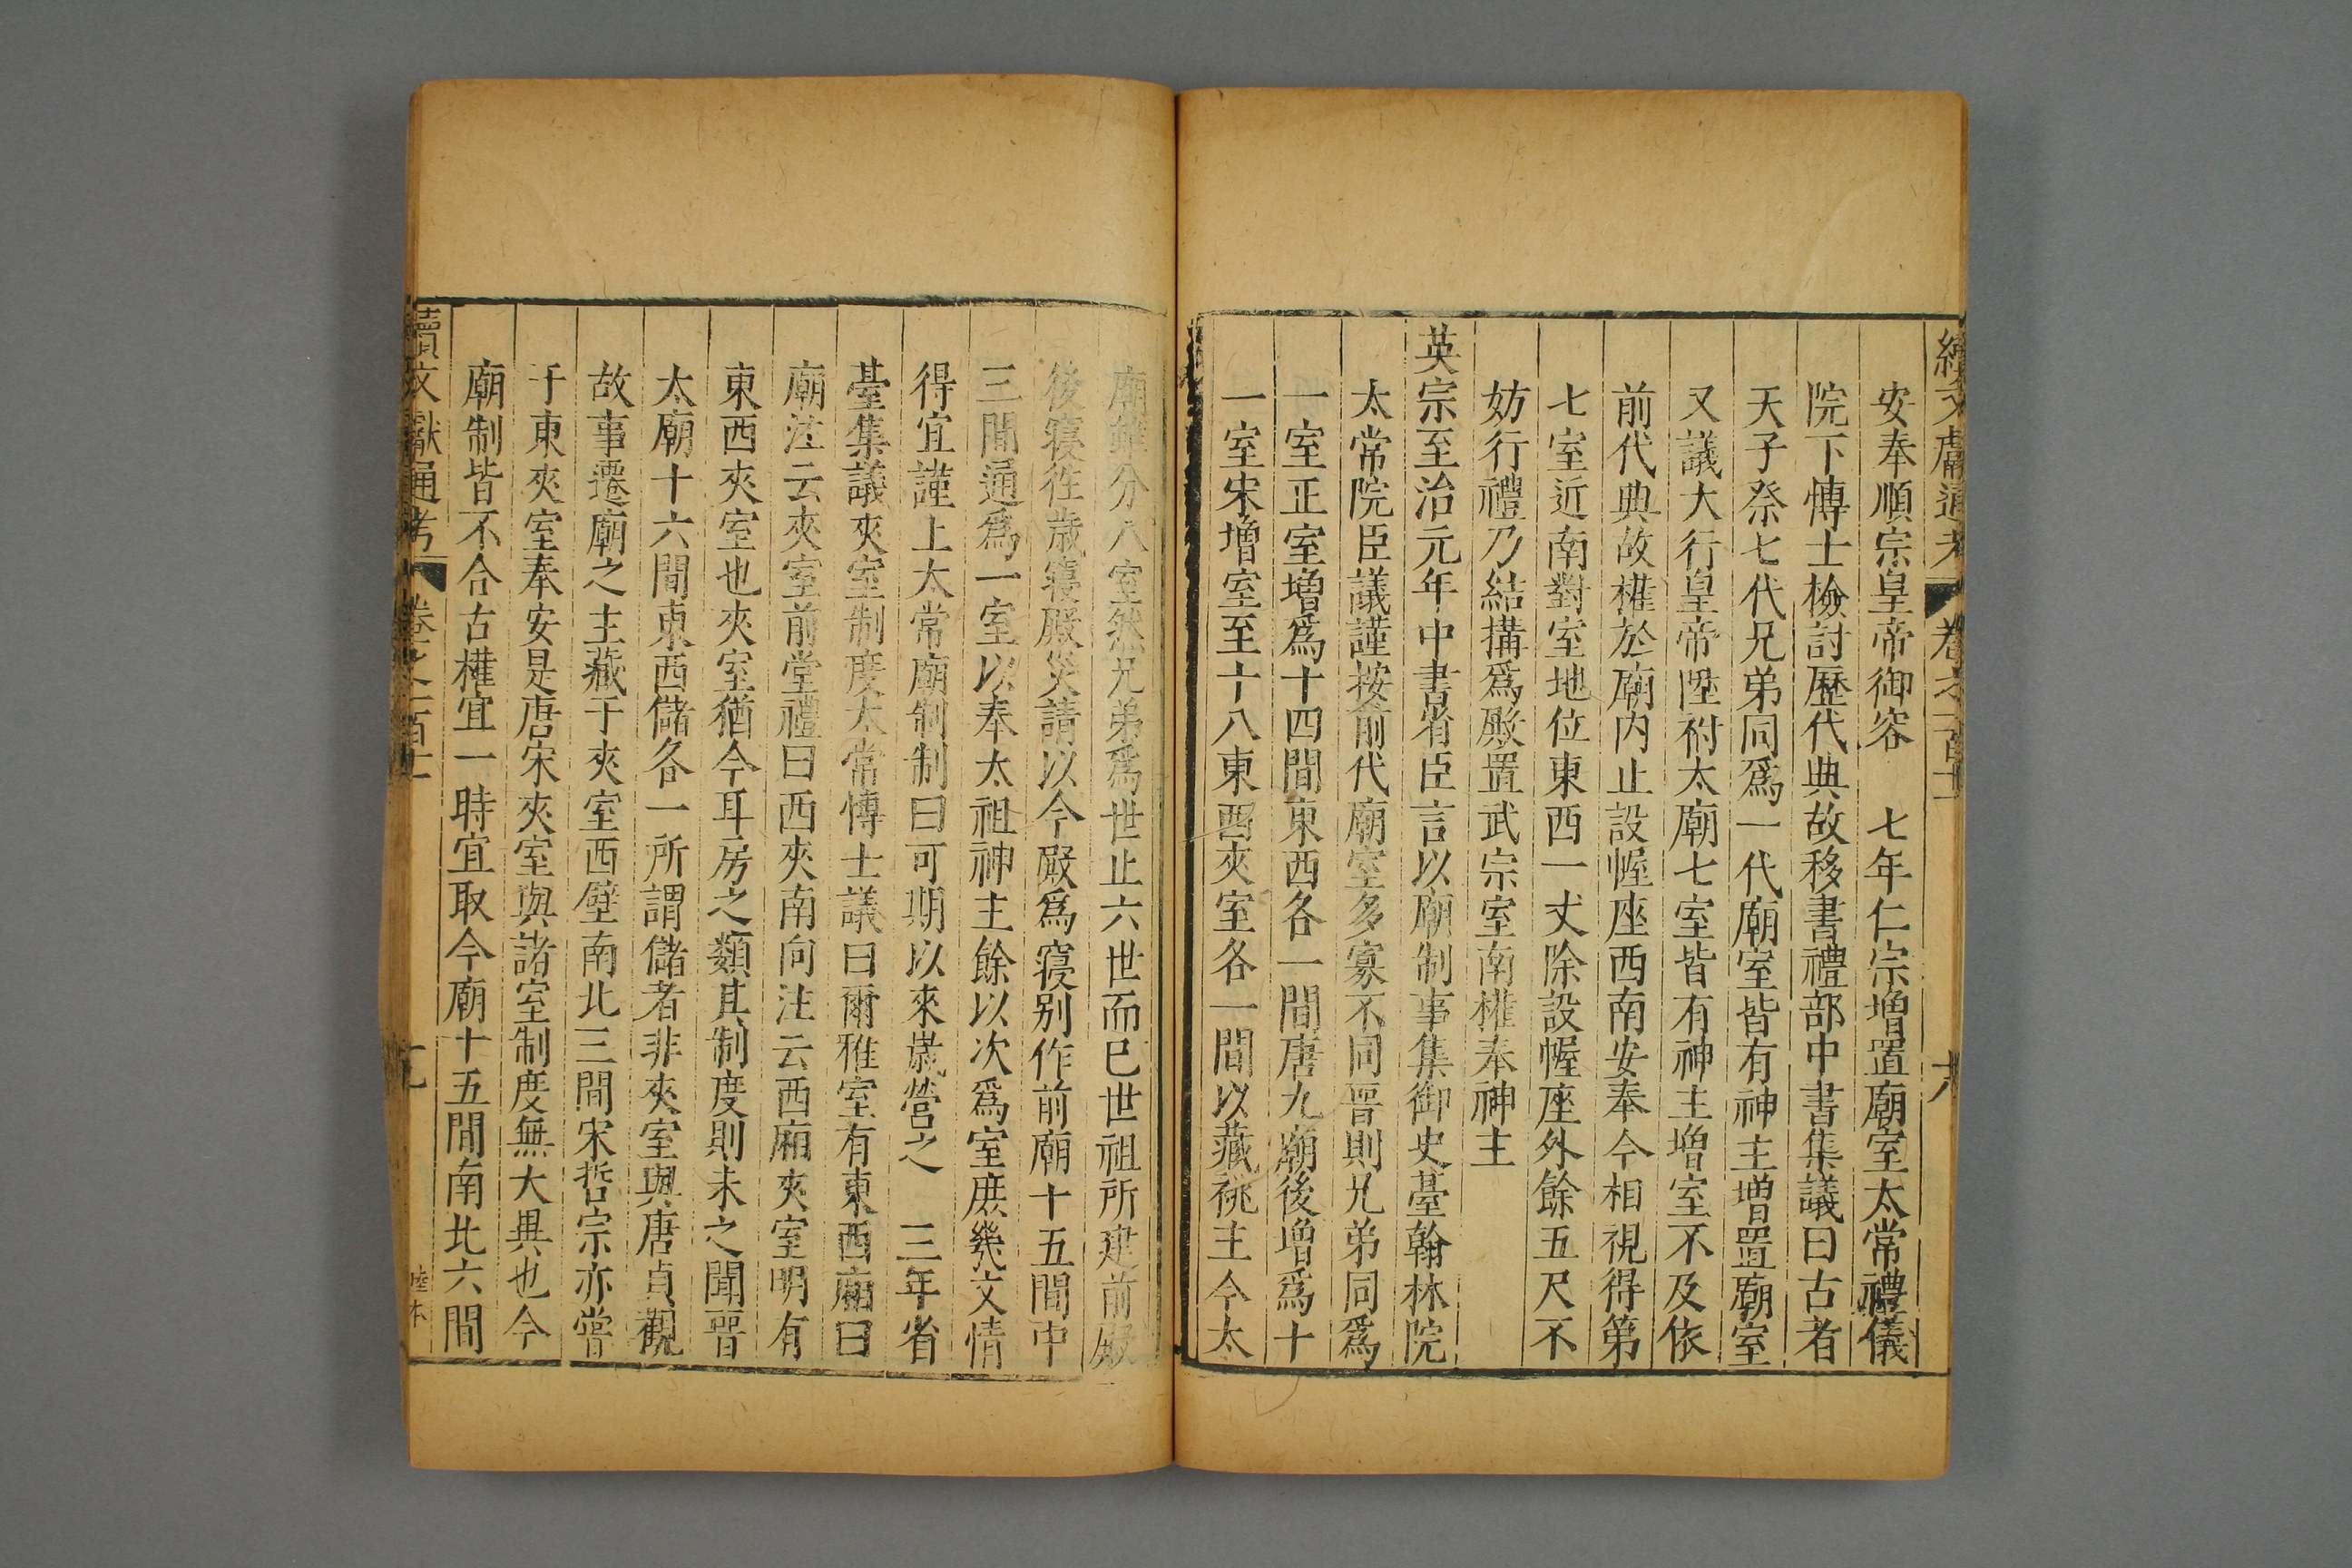 續文獻通考 卷之一百十 六
安奉順宗皇帝御容 七年仁宗增置廟室太常禮儀
院下愽士檢討歷代典故移書禮部中書集議曰古者
天子祭七代兄弟同爲一代廟室皆有神主增置廟室
又議大行皇帝陞祔太廟七室皆有神主增室不及依
前代典故權於廟内止設幄座西南安奉今相視得第
七室近南對室地位東西一丈除設幄座外餘五尺不
妨行禮乃結搆爲殿置武宗室南權奉神主
英宗至治元年中書省臣言以廟制事集御史臺翰林院
太常院臣議謹按前代廟室多寡不同晉則兄弟同爲
一室正室增爲十四間東西各一間唐九廟後增爲十
一室宋增室至十八東西夾室各一間以藏祧主今太
廟雖分八室然兄弟爲世止六世而巳世祖所建前殿
後寢徃歲寢殿災請以今殿爲寢别作前廟十五間中
三間通爲一室以奉太祖神主餘以次爲室庶幾文情
得宜謹上太常廟制制曰可期以來歲營之 三年省
臺集議夾室制度太常愽士議曰爾雅室有東西廂曰
廟注云夾室前堂禮曰西夾南向注云西廂夾室明有
東西夾室也夾室猶今耳房之類其制度則未之聞晉
太廟十六間東西儲各一所謂儲者非夾室與唐貞觀
故事遷廟之主藏于夾室西壁南北三間宋哲宗亦嘗
于東夾室奉安是唐宋夾室與諸室制度無大異也今
廟制皆不合古權宜一時宜取今廟十五間南北六間
續文獻通考 卷之一百十